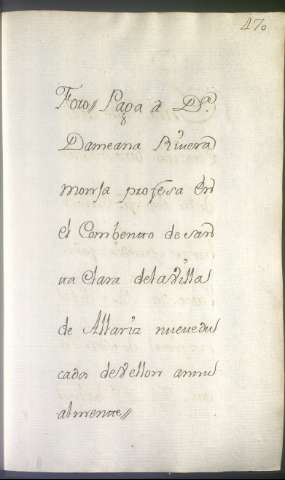 470
Foro // Paga a Dª.
Dameana Rivera
monja profesa En
el Combento de San
ta Clara de la Villa
de Allariz nuevedu
cados deVellon annu
almente //